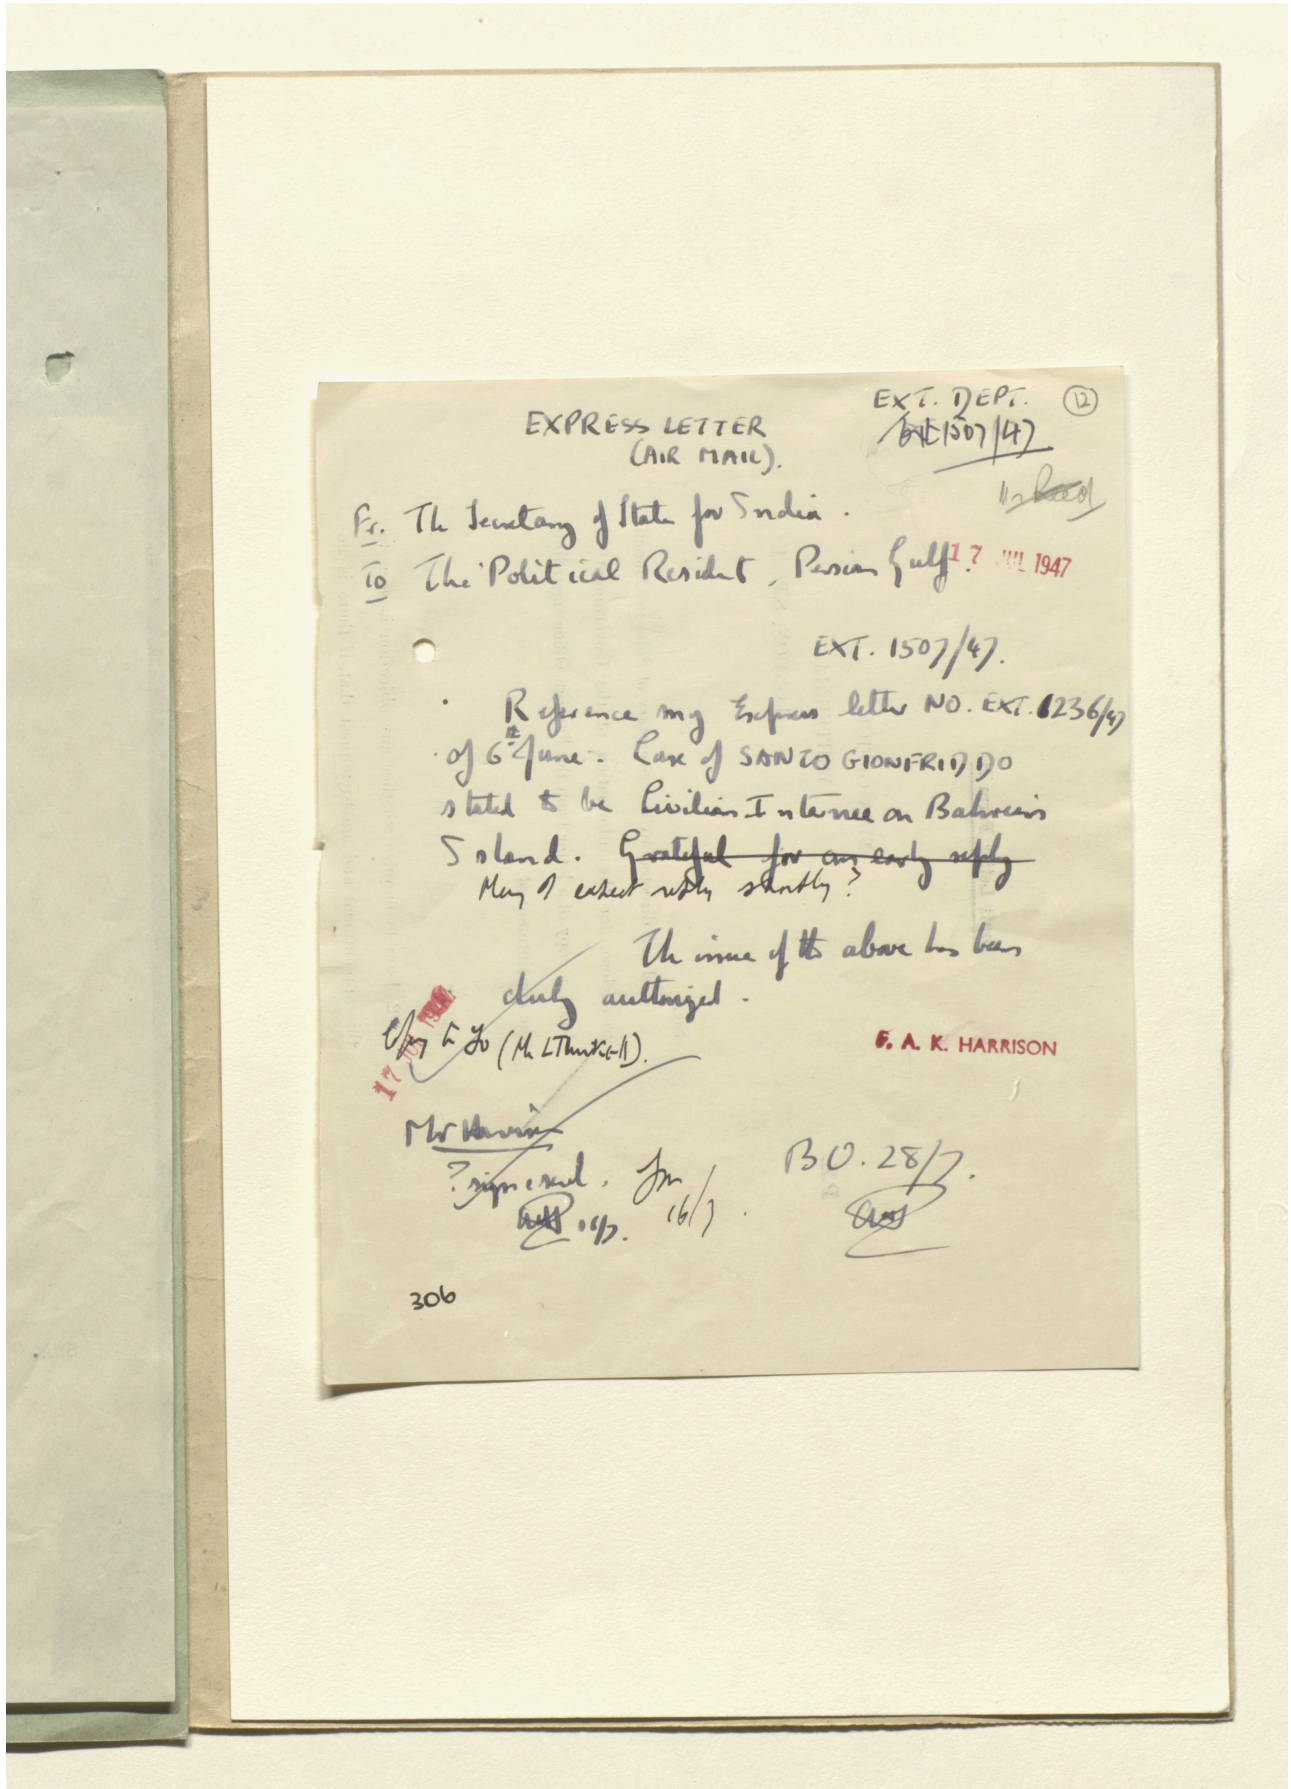 EXT. DEPT. 12
EXPRESS LETTER
(AIR MAIL).
Ext 1507/47
Fr. The Secretary of State for India.
To The Political Resident, Persian Gulf.
17 JUL 1947
EXT. 1507/47.
Reference my Express letter NO. EXT. 1236/47
of 6th June. Case of SANTO GIONFRIDDO
stated to be Civilian Internee on Bahrein
Island. Grateful for an early reply
May I expect reply shortly?
The issue of the above has been
duly authorized.
Copy to FO
F. A. K. HARRISON
17 JUL
Mr Harrison
? sign & send.
16/7
16/7.
B.U. 28/7.
306